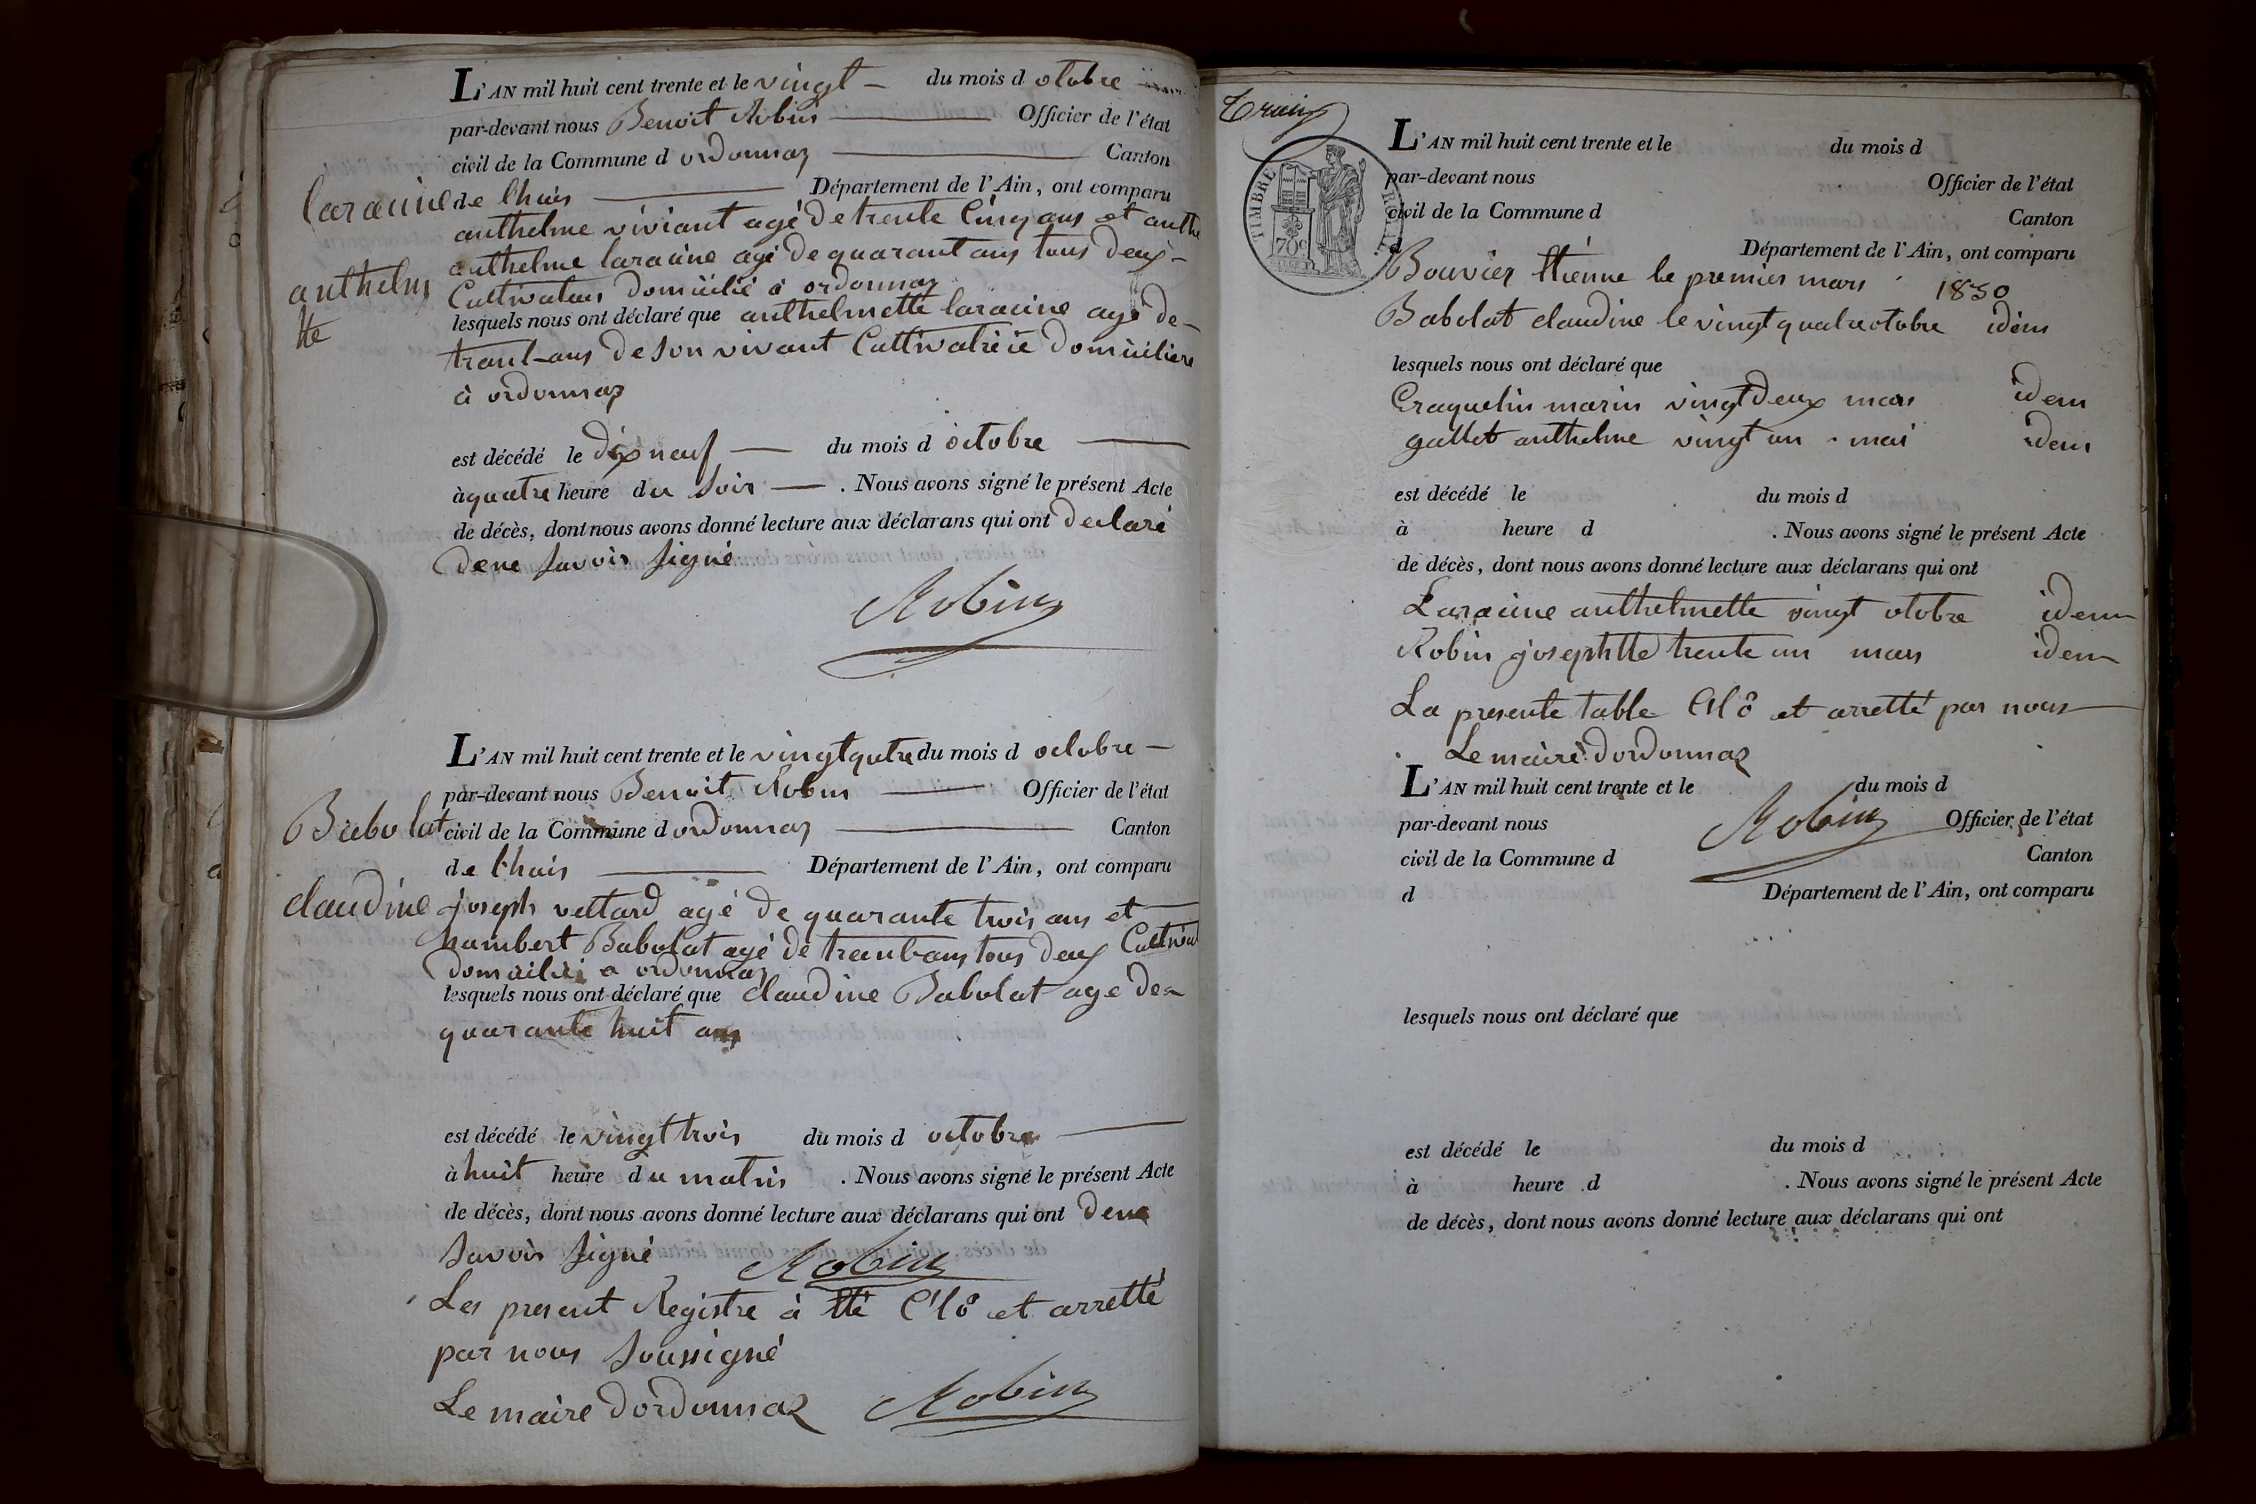 L'AN mil huit cent trente et le vingt du mois d otobre
par-devant nous Benoit Robin Officier de l'état
civil de la Commune d ordonnaz Canton
de lhuis Département de l'Ain, ont comparu
laracine
anthelme
tte
anthelme viviant agé de trente Cinq ans et anthe
anthelme laracine agé de quarant ans tous deux
Cultivateur domicilié à ordonnaz
lesquels nous ont déclaré que anthelmette laracine agé de
trant ans de son vivant Cultivatrice domiciliere
à ordonnaz
est décédé le dix neuf du mois d octobre
à quatre heure du soir . Nous avons signé le présent Acte
de décès, dont nous avons donné lecture aux déclarans qui ont declaré
de ne savoir signé
Robin
L'AN mil huit cent trente et le vingt qutre du mois d octobre
par-devant nous Benoit Robin Officier de l'état
civil de la Commune d ordonnaz Canton
de lhuis Département de l'Ain, ont comparu
Babolat
claudine
joseph vettard agé de quarante trois ans et
humbert Babolat agé de trant ans tous deux Cultivat
domicilié a ordonnaz
lesquels nous ont déclaré que claudine Babolat age de
quarante huit ans
est décédé le vingt trois du mois d octobre
à huit heure du matin . Nous avons signé le présent Acte
de décès, dont nous avons donné lecture aux déclarans qui ont de ne
savoir signé Robin
Les present Registre à été Clô et arretté
par nous soussigné
Le maire dordonnaz Robin
TIMBRE ROYAL
70c
L'AN mil huit cent trente et le du mois d
par-devant nous Officier de l'état
civil de la Commune d Canton
d Département de l'Ain, ont comparu
Bouvier Etienne le premier mars 1830
Babolat claudine le vingt quatre octobre idem
lesquels nous ont déclaré que
Craquelin marin vingt deux mars idem
gallet anthelme vingt un mai idem
est décédé le du mois d
à heure d . Nous avons signé le présent Acte
de décès, dont nous avons donné lecture aux déclarans qui ont
Laracine anthelmette vingt otobre idem
Robin josephtte trente un mars idem
La presente table Clô et arretté par nous
Le maire dordonnaz
L'AN mil huit cent trente et le du mois d
Robin
par-devant nous Officier de l'état
civil de la Commune d Canton
d Département de l'Ain, ont comparu
lesquels nous ont déclaré que
est décédé le du mois d
à heure d . Nous avons signé le présent Acte
de décès, dont nous avons donné lecture aux déclarans qui ont